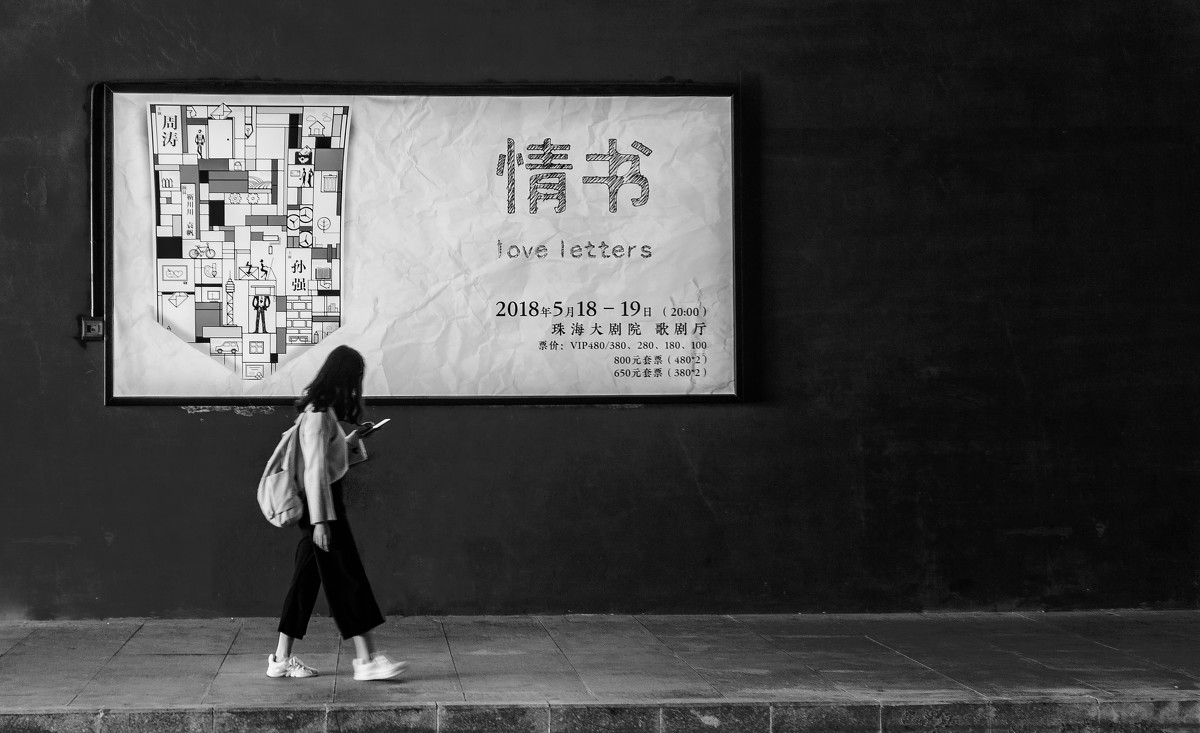 周涛
靳川川 袁帆
孙强
情书
love letters
2018年5月18-19日 (20:00)
珠海大剧院 歌剧厅
票价: VIP480/380、280、180、100
800元套票 (480*2)
650元套票 (380*2)